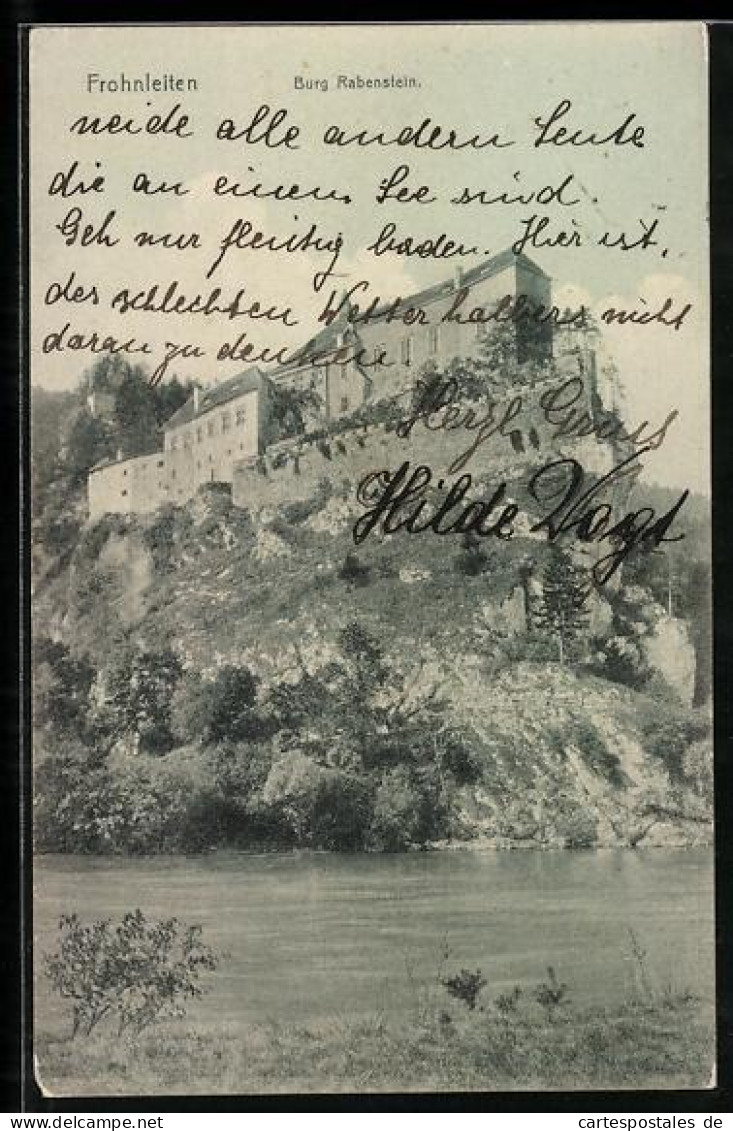 Frohnleiten Burg Rabenstein.
neide alle andern Leute
die an einem See sind.
Geh nur fleißig baden. Hier ist,
des schlechten Wetter halber nicht
daran zu denken.
Herzl. Gruss
Hilde Vogt
cartespostales.de